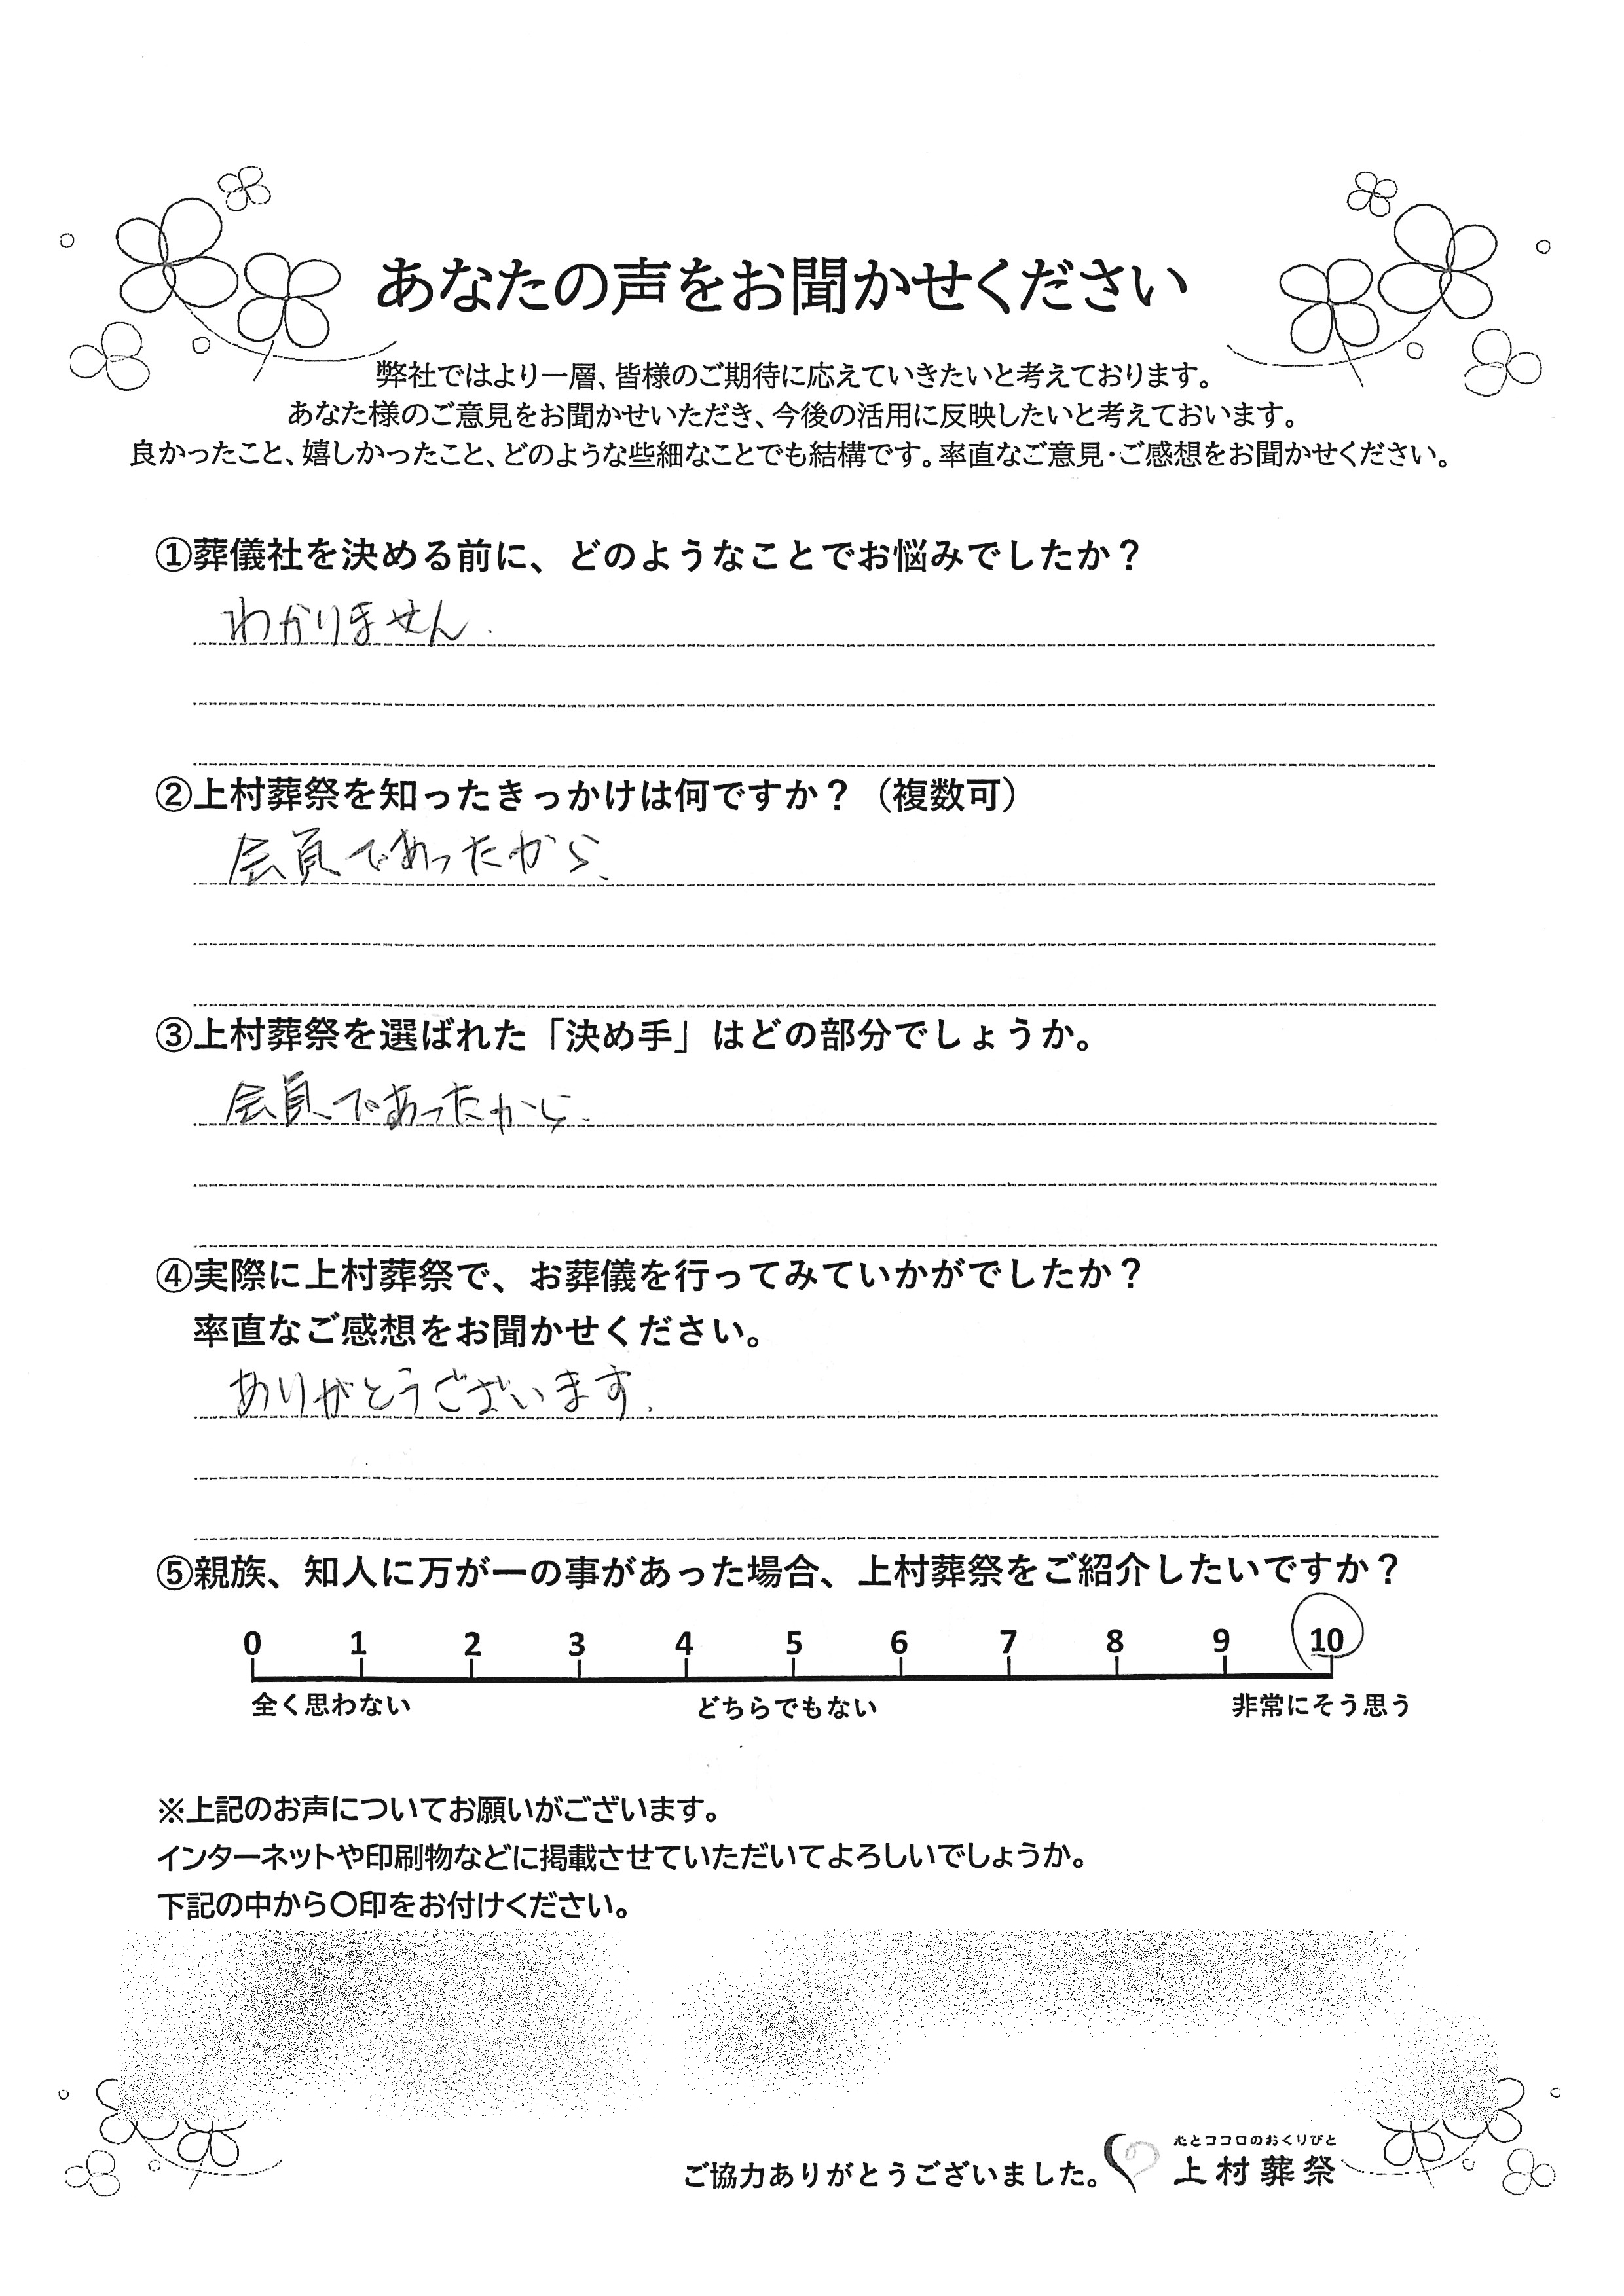 あなたの声をお聞かせください
弊社ではより一層、皆様のご期待に応えていきたいと考えております。
あなた様のご意見をお聞かせいただき、今後の活用に反映したいと考えておいます。
良かったこと、嬉しかったこと、どのような些細なことでも結構です。率直なご意見・ご感想をお聞かせください。
①葬儀社を決める前に、どのようなことでお悩みでしたか？
わかりません.
②上村葬祭を知ったきっかけは何ですか？（複数可）
会員であったから、
③上村葬祭を選ばれた「決め手」はどの部分でしょうか。
会員であったから.
④実際に上村葬祭で、お葬儀を行ってみていかがでしたか？
率直なご感想をお聞かせください。
ありがとうございます.
⑤親族、知人に万が一の事があった場合、上村葬祭をご紹介したいですか？
0 1 2 3 4 5 6 7 8 9 10
全く思わない どちらでもない 非常にそう思う
※上記のお声についてお願いがございます。
インターネットや印刷物などに掲載させていただいてよろしいでしょうか。
下記の中から〇印をお付けください。
心とココロのおくりびと
ご協力ありがとうございました。 上村葬祭